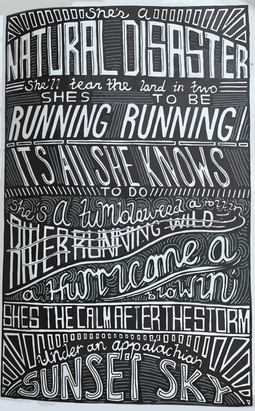 She's a
NATURAL DISASTER
She'll tear the land in two
SHES TO BE
RUNNING RUNNING!
IT'S All SHE KNOWS
TO DO
She's a tumbleweed a rollin
RIVER RUNNING WILD
a Hurricane a
blowin'
SHES THE CALM AFTER THE STORM
under an appalachian
SUNSET SKY